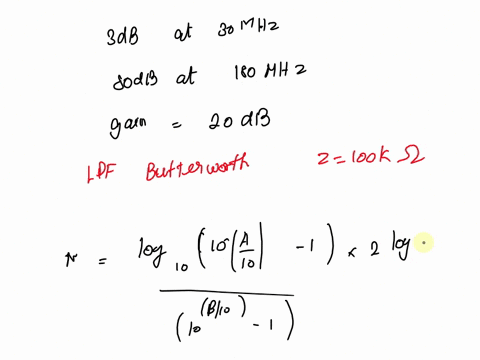 3dB at 30 MHz
80dB at 180 MHz
gain = 20 dB
LPF Butterworth Z = 100k Ω
n = log10 (10^(A/10) - 1) × 2 log
(10^(B/10) - 1)